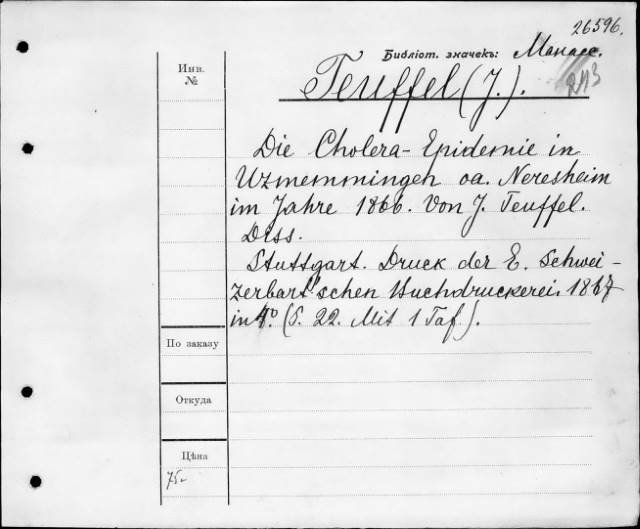 26596.
Библіот. значекъ: Манасс.
Инв.
№
Teuffel (J.).
Die Cholera-Epidemie in
Uzmemmingen oa. Neresheim
im Jahre 1866. Von J. Teuffel.
Diss.
Stuttgart. Druck der E. Schwei-
zerbart'schen Buchdruckerei. 1867
in 4°. (S. 22. Mit 1 Taf.).
По заказу
Откуда
Цѣна